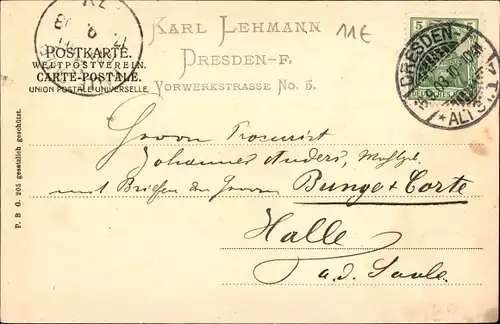 KARL LEHMANN
DRESDEN-F.
VORWERKSTRASSE No. 5.
ME
POSTKARTE.
WELTPOSTVEREIN.
CARTE-POSTALE.
UNION POSTALE UNIVERSELLE.
5 5
DRESDEN
*ALTST.
P. B. G. 205 gesetzlich geschützt.
Herrn Procurist
Johannes Anders,
mit Briefen der Herren Bunge & Corte
Halle
a. d. Saale.